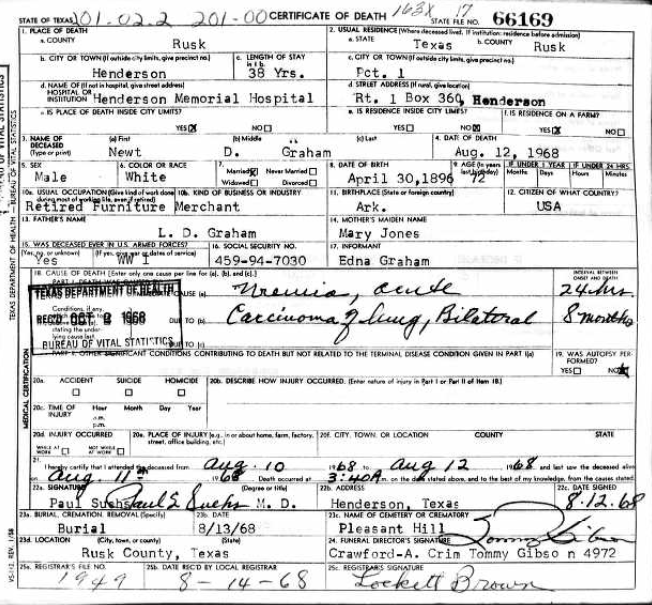 201-02.2 201-00 163X 17
STATE OF TEXAS CERTIFICATE OF DEATH STATE FILE NO. 66169
1. PLACE OF DEATH 2. USUAL RESIDENCE (Where deceased lived. If institution: residence before admission)
a. COUNTY Rusk a. STATE Texas b. COUNTY Rusk
b. CITY OR TOWN (If outside city limits, give precinct no.) c. LENGTH OF STAY c. CITY OR TOWN (If outside city limits, give precinct no.)
Henderson 38 Yrs. Pct. 1
d. NAME OF (If not in hospital, give street address) d. STREET ADDRESS (If rural, give location)
HOSPITAL OR
INSTITUTION Henderson Memorial Hospital Rt. 1 Box 360, Henderson
e. IS PLACE OF DEATH INSIDE CITY LIMITS? e. IS RESIDENCE INSIDE CITY LIMITS? f. IS RESIDENCE ON A FARM?
YES NO YES NO YES NO
3. NAME OF DECEASED (Type or print) (a) First (b) Middle (c) Last 4. DATE OF DEATH
Newt D. Graham Aug. 12, 1968
5. SEX 6. COLOR OR RACE 7. Married Never Married 8. DATE OF BIRTH 9. AGE (In years last birthday) IF UNDER 1 YEAR IF UNDER 24 HRS.
Widowed Divorced Months Days Hours Minutes
Male White April 30,1896 72
10a. USUAL OCCUPATION (Give kind of work done during most of working life, even if retired) 10b. KIND OF BUSINESS OR INDUSTRY 11. BIRTHPLACE (State or foreign country) 12. CITIZEN OF WHAT COUNTRY?
Retired Furniture Merchant Ark. USA
13. FATHER'S NAME 14. MOTHER'S MAIDEN NAME
L. D. Graham Mary Jones
15. WAS DECEASED EVER IN U.S. ARMED FORCES? 16. SOCIAL SECURITY NO. 17. INFORMANT
(Yes, no, or unknown) (If yes, give war or dates of service)
Yes WW I 459-94-7030 Edna Graham
18. CAUSE OF DEATH [Enter only one cause per line for (a), (b), and (c).] INTERVAL BETWEEN ONSET AND DEATH
TEXAS DEPARTMENT OF HEALTH
CAUSE (a) Uremia, acute 24 hrs.
Conditions, if any,
REC'D OCT 8 1968 DUE TO (b) Carcinoma of lung, Bilateral 8 months
stating the under-
lying cause last. DUE TO (c)
BUREAU OF VITAL STATISTICS
PART II. OTHER SIGNIFICANT CONDITIONS CONTRIBUTING TO DEATH BUT NOT RELATED TO THE TERMINAL DISEASE CONDITION GIVEN IN PART I(a) 19. WAS AUTOPSY PERFORMED?
YES NO
20a. ACCIDENT SUICIDE HOMICIDE 20b. DESCRIBE HOW INJURY OCCURRED. (Enter nature of injury in Part I or Part II of item 18.)
20c. TIME OF INJURY Hour Month Day Year
a.m.
p.m.
20d. INJURY OCCURRED 20e. PLACE OF INJURY (e.g., in or about home, farm, factory, street, office building, etc.) 20f. CITY, TOWN, OR LOCATION COUNTY STATE
WHILE AT WORK NOT WHILE AT WORK
21. I hereby certify that I attended the deceased from Aug. 10 1968 to Aug 12 1968 and last saw the deceased alive
on Aug. 11th 1968 Death occurred at 3:40A m. on the date stated above, and to the best of my knowledge, from the causes stated.
22a. SIGNATURE (Degree or title) 22b. ADDRESS 22c. DATE SIGNED
Paul Suchs Paul G Suchs M. D. Henderson, Texas 8.12.68
23a. BURIAL, CREMATION, REMOVAL (Specify) 23b. DATE 23c. NAME OF CEMETERY OR CREMATORY
Burial 8/13/68 Pleasant Hill
23d. LOCATION (City, town, or county) (State) 24. FUNERAL DIRECTOR'S SIGNATURE Tommy Gibson
Rusk County, Texas Crawford-A. Crim Tommy Gibso n 4972
25a. REGISTRAR'S FILE NO. 25b. DATE REC'D BY LOCAL REGISTRAR 25c. REGISTRAR'S SIGNATURE
1949 8-14-68 Lockett Brown
TEXAS DEPARTMENT OF HEALTH - BUREAU OF VITAL STATISTICS
MEDICAL CERTIFICATION
VS-112, REV. 1/58